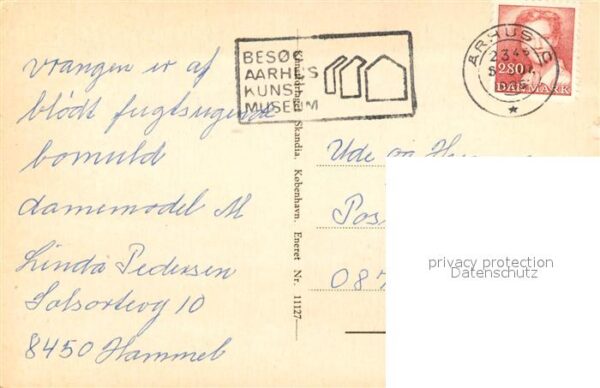 vrangen er af
blødt fugtsugende
bomuld
damemodel M
Linda Pedersen
Solsortevej 10
8450 Hammel
BESØG
AARHUS
KUNST
MUSEUM
ÅRHUS C
2.80
DANMARK
Skandia. København. Eneret Nr. 11127
Ude og
Pos
087
privacy protection
Datenschutz